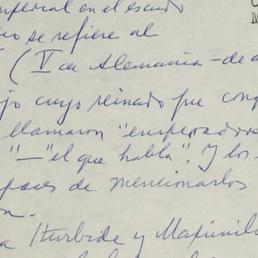 imperial en el escudo
se refiere al
( V en Alemania - de a
jo cuyo reinado fue conq
llamaron "emperadore
"—" el que habla". Y los
paces de mencionarlos
n.
a Iturbide y Maximil